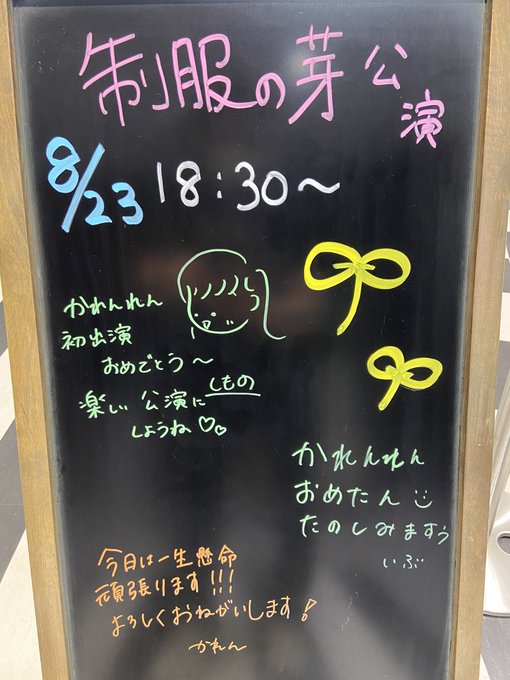 制服の芽公演
8/23 18:30～
かれんれん
初出演
おめでとう～
楽しい公演に
しようね♡♡
しもの
かれんれん
おめたん☺
たのしみますぅ
いぶ
今日は一生懸命
頑張ります!!!
よろしくおねがいします!
かれん